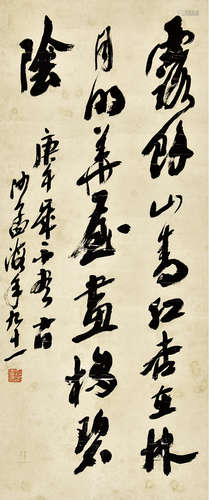 露餘山青紅杏在林
月明華屋畫橋碧
陰
庚午歲
沙孟海年九十一